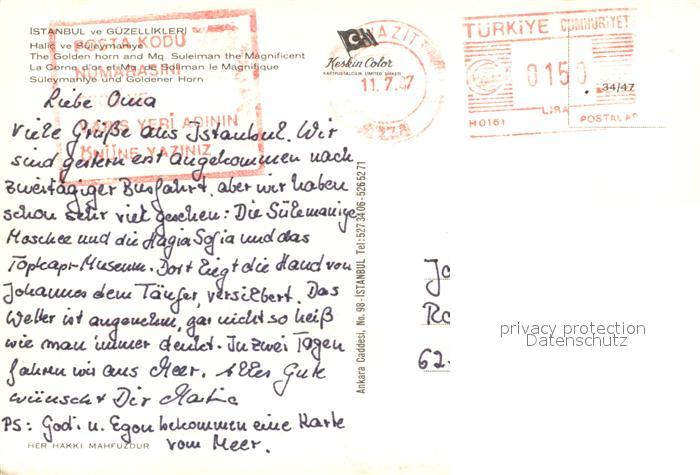 İSTANBUL ve GÜZELLİKLERİ
Haliç ve Süleymaniye
The Golden horn and Mq. Suleiman the Magnificent
La Corne d'or et Mq. de Soliman le Magnifique
Süleymaniye und Goldener Horn
POSTA KODU
NUMARASINI
YERİ ADININ
ÖNÜNE YAZINIZ
Keskin Color
KARTPOSTALCILIK LIMITED ŞİRKETİ
11.7.87
TÜRKİYE CUMHURİYETİ
0150
34/47
LİRA
H0161
POSTALAR
Liebe Oma
Viele Grüße aus Istanbul. Wir
sind gestern erst angekommen nach
zweitägiger Busfahrt, aber wir haben
schon sehr viel gesehen: Die Sülemaniye
Moschee und die Hagia Sofia und das
Topkapi-Museum. Dort liegt die Hand von
Johannes dem Täufer, versilbert. Das
Wetter ist angenehm, gar nicht so heiß
wie man immer denkt. In zwei Tagen
fahren wir ans Meer. Alles Gute
wünscht Dir Martin
PS: God. u. Egon bekommen eine Karte
vom Meer.
HER HAKKI MAHFUZDUR
Ankara Caddesi, No. 98-İSTANBUL Tel: 5273406-5265271
Jo
Ro
62-
privacy protection
Datenschutz